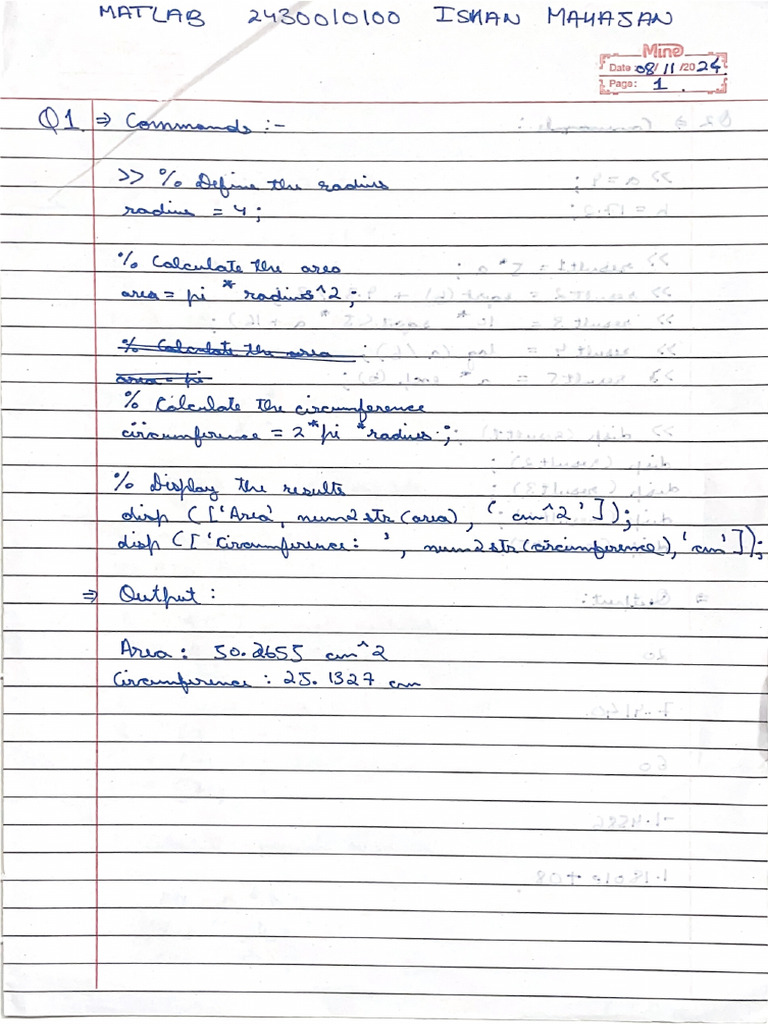 MATLAB 2430010100 ISHAN MAHAJAN
Mine
Date 08/11/2024
Page: 1
Q1 ⇒ Commands :-
>> % Define the radius
radius = 4;
% Calculate the area
area = pi * radius^2;
% Calculate the area
area = pi
% Calculate the circumference
circumference = 2*pi *radius ;
% Display the results
disp (['Area', num2str(area), ' cm^2']);
disp (['Circumference: ', num2str(circumference), 'cm']);
⇒ Output :
Area : 50.2655 cm^2
Circumference : 25.1327 cm